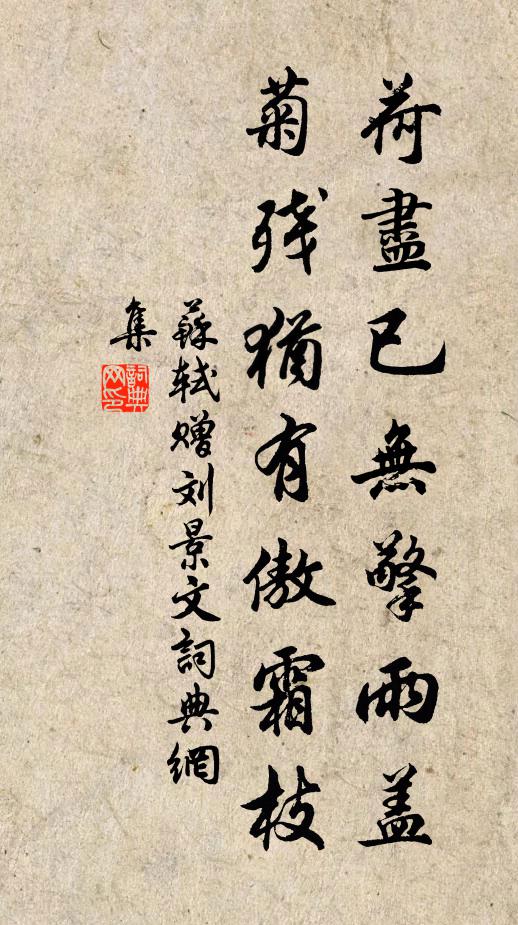 荷盡已無擎雨盖
菊残猶有傲霜枝
蘇轼赠刘景文詞典網
集
詞典
网印